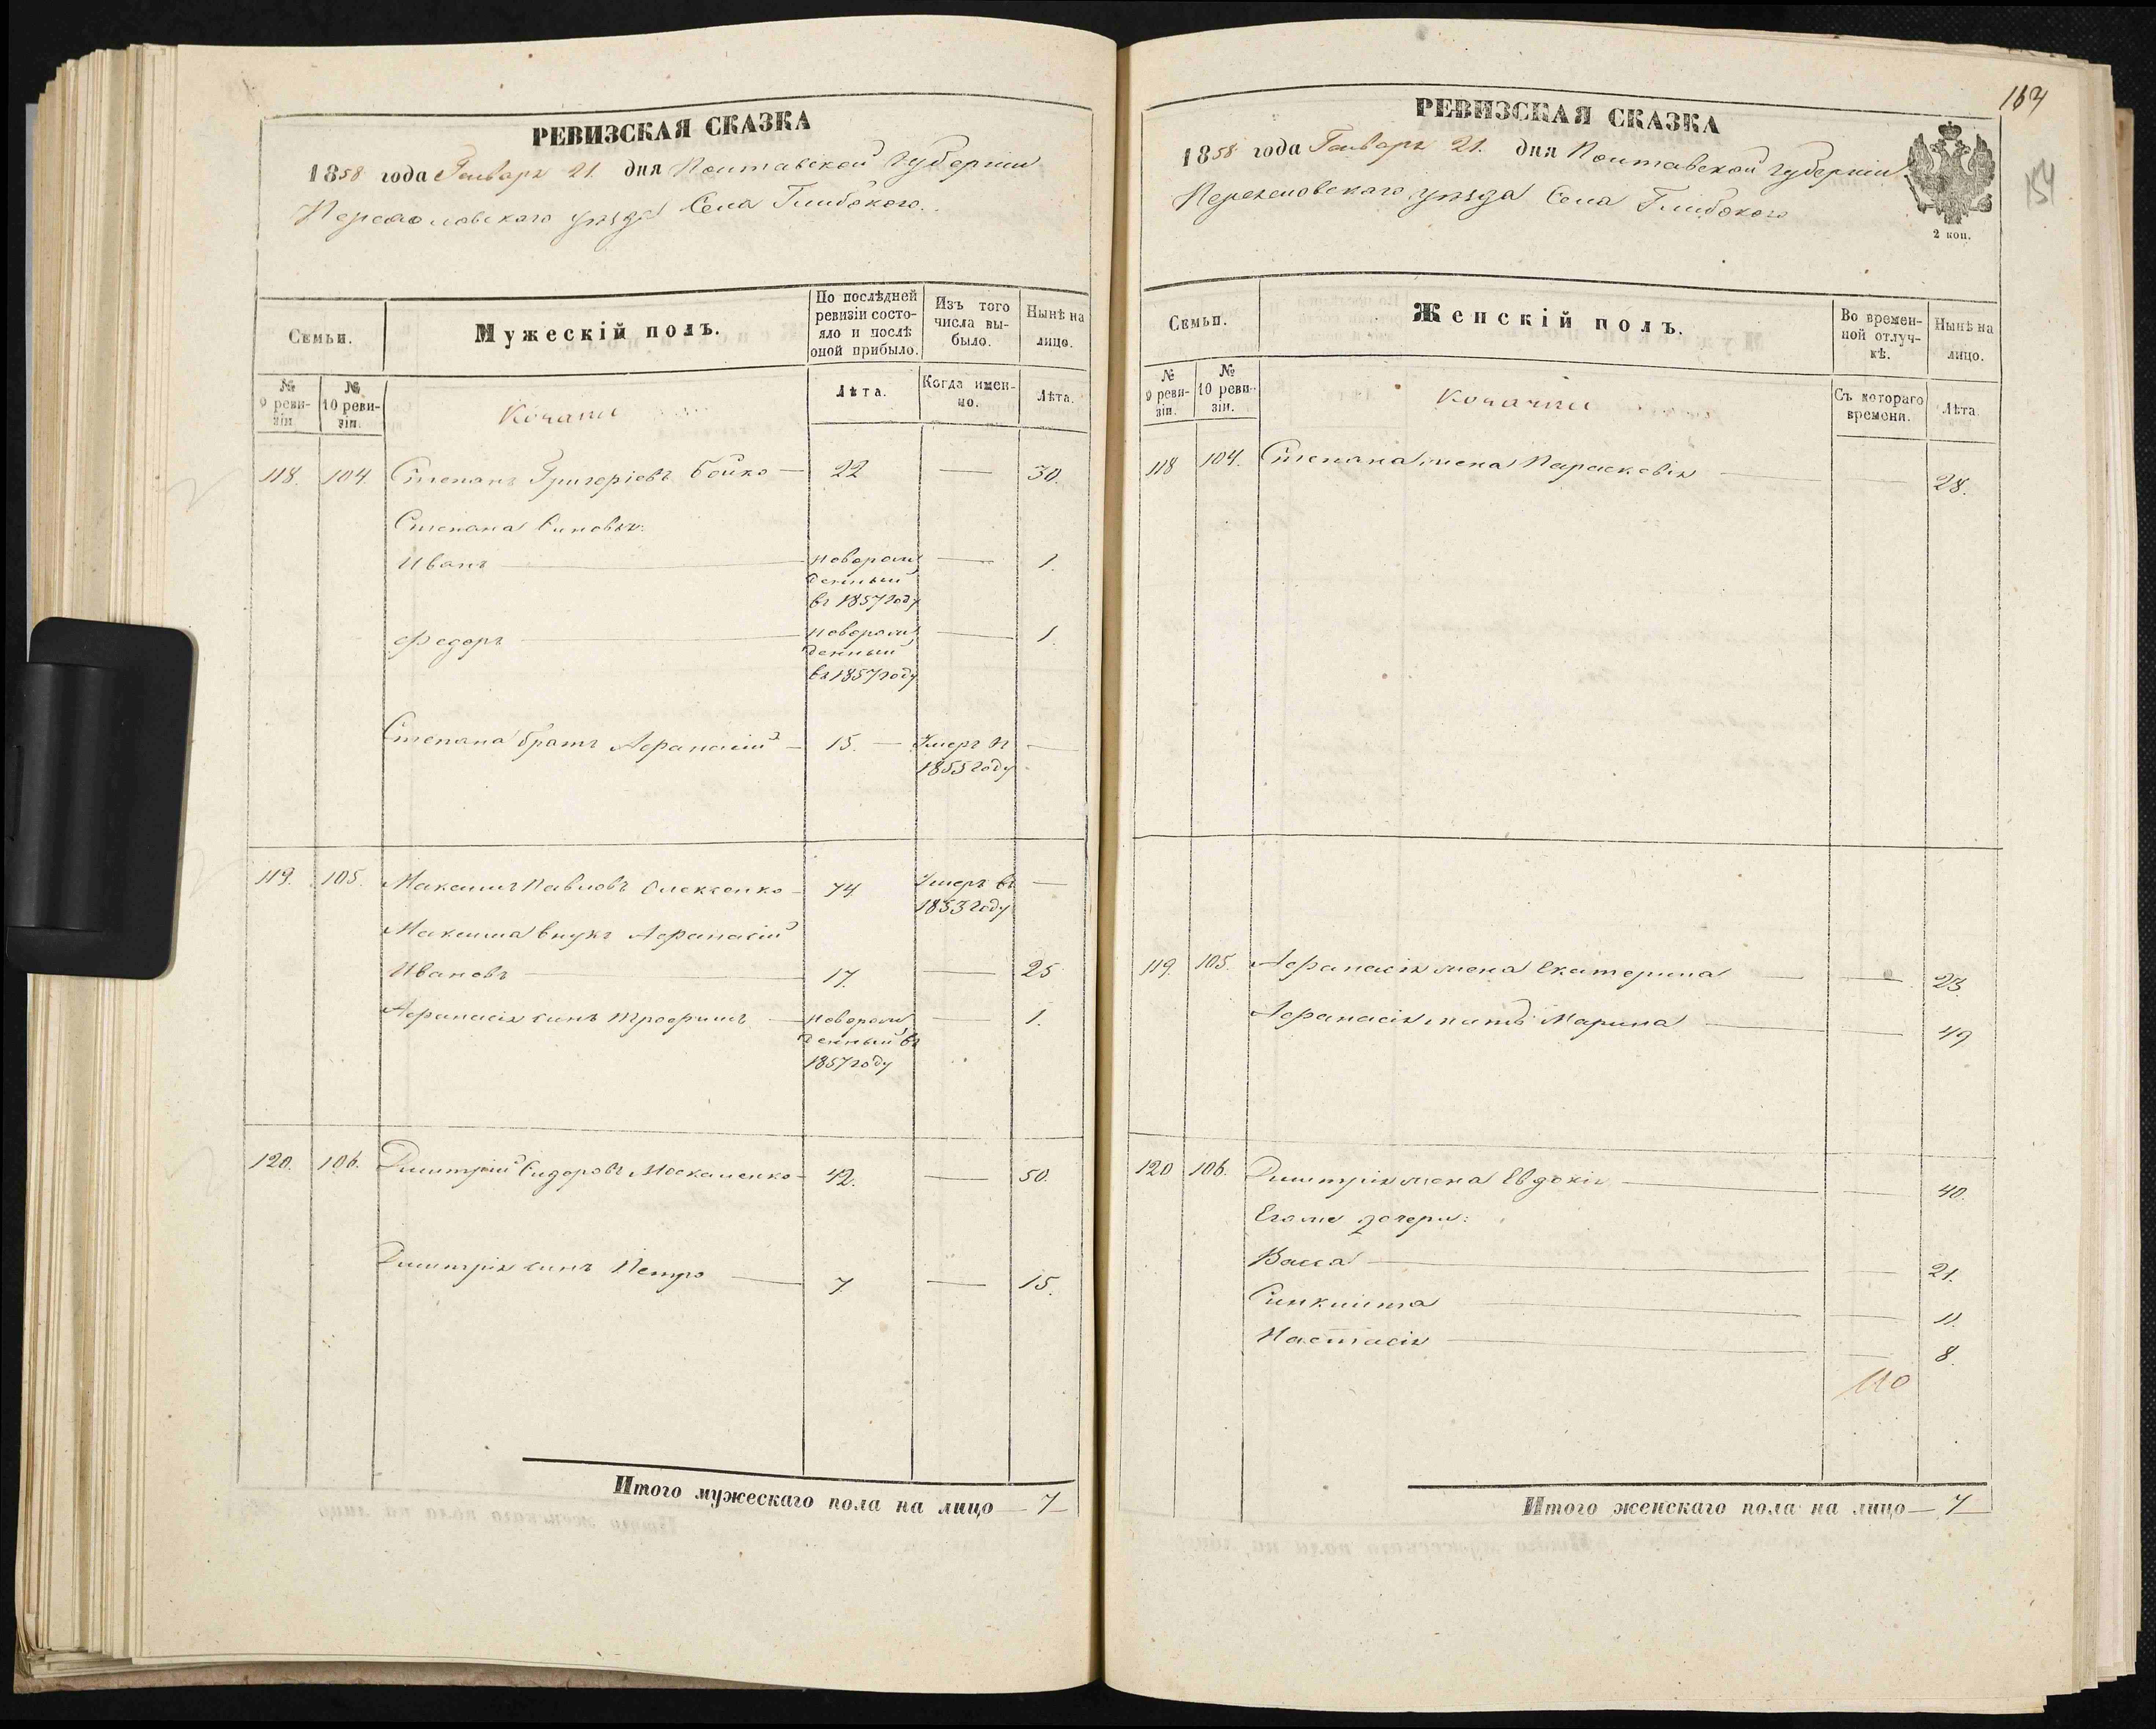 РЕВИЗСКАЯ СКАЗКА
1858 года Генваря 21. дня Полтавской Губерніи
Переяславскаго уѣзда Села Глибокого.
Семьи.
Мужескій полъ.
По послѣдней ревизіи состояло и послѣ оной прибыло.
Изъ того числа выбыло.
Нынѣ на лицо.
№ 9 ревизіи.
№ 10 ревизіи.
Лѣта.
Когда именно.
Лѣта.
118. 104. Степанъ Григоріевъ Бойко — 22 — 30.
Степана Синовья:
Иванъ — новорожденный въ 1857 году — 1.
Федоръ — новорожденный въ 1857 году — 1.
Степана братъ Афанасій — 15. — Умеръ в 1855 году —
119. 105. Максимъ Павловъ Олексенко — 74 Умеръ въ 1853 году —
Максима внукъ Афанасій
Ивановъ — 17. — 25
Афанасія синъ Трофимъ — новорожденный въ 1857 году — 1.
120. 106. Димитрій Сидоровъ Москаленко — 42. — 50.
Димитрія синъ Петро — 7. — 15.
Итого мужескаго пола на лицо — 7
164
154
РЕВИЗСКАЯ СКАЗКА
1858 года Генваря 21. дня Полтавской Губерніи
Переяславскаго уѣзда Села Глибокого
2 коп.
Семьи.
Женскій полъ.
Во временной отлучкѣ.
Нынѣ на лицо.
№ 9 ревизіи.
№ 10 ревизіи.
Съ котораго времени.
Лѣта.
118 104. Степана жена Параскевія — 28.
119. 105. Афанасія жена Екатерина — 23.
Афанасія мать Марина — 49
120 106. Димитрія жена Евдокія — 40.
Его же дочери:
Васса — 21.
Синклита — 11.
Настасія — 8.
110
Итого женскаго пола на лицо — 7